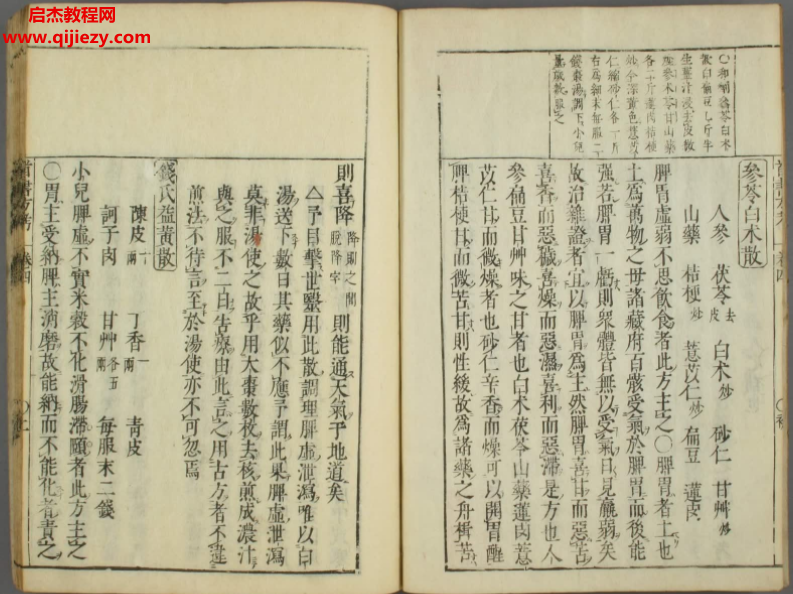 启杰教程网
www.qijiezy.com
參苓白朮散
人參 茯苓去皮 白朮炒 砂仁 甘艸炒
山藥 桔梗炒 薏苡仁炒 扁豆 蓮肉
脾胃虛弱不思飲食者此方主之〇脾胃者土也
土爲萬物之母諸藏府百骸受氣於脾胃而後能
强若脾胃一虧則衆體皆無以受氣日見羸弱矣
故治雜證者宜以脾胃爲主然脾胃喜甘而惡苦
喜香而惡穢喜燥而惡濕喜利而惡滯是方也人
參扁豆甘艸味之甘者也白朮茯苓山藥蓮肉薏
苡仁甘而微燥者也砂仁辛香而燥可以開胃醒
脾桔梗甘而微苦甘則性緩故爲諸藥之舟楫苦
則喜降則能通天氣于地道矣
△予目擊世毉用此散調理脾虛泄瀉唯以白
湯送下數日其藥似不應予謂此果脾虛泄瀉
莫非湯使之故乎用大棗數枚去核煎成濃汁
與之服不二日告瘳由此言之用古方者不違
煎法不待言至於湯使亦不可忽焉
錢氏益黃散
陳皮一兩 丁香一兩 青皮
訶子肉 甘艸各五兩 每服末二錢
小兒脾虛不實米穀不化滑腸滯頤者此方主之
〇胃主受納脾主消磨故能納而不能化者責之